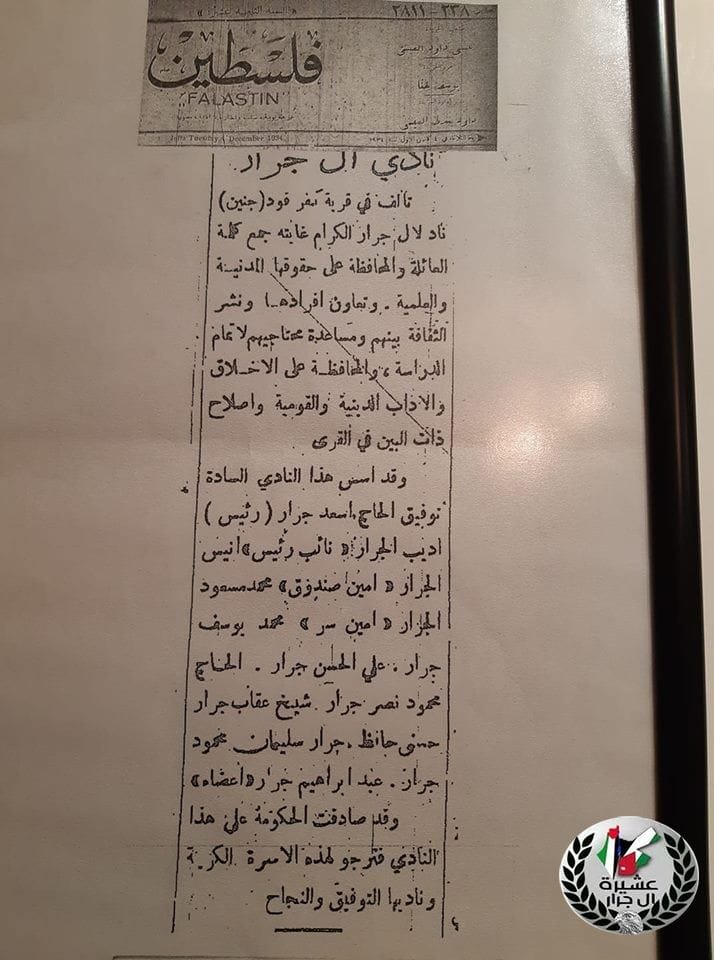 ٢٣٨-٢٨١١
« السنة الثامنة عشرة »
عيسى داود العيسى
فلسطين
يوسف حنا
"FALASTIN"
Jaffa Tuesday 4 December 1934
نادي آل جرار
تألف في قرية كفر قود (جنين)
ناد لال جرار الكرام غايته جمع كلمة
العائلة والمحافظة على حقوقها المدنية
والعلمية . وتعاون افرادها ونشر
الثقافة بينهم ومساعدة محتاجيهم لاتمام
الدراسة ، والمحافظة على الاخلاق
والاداب الدينية والقومية واصلاح
ذات البين في القرى
وقد اسس هذا النادي السادة
توفيق الحاج اسعد جرار ( رئيس )
اديب الجرار « نائب رئيس » انيس
الجرار « امين صندوق » محمد مسعود
الجرار « امين سر » محمد يوسف
جرار . علي الحسن جرار . الحاج
محمود نصر جرار شيخ عقاب جرار
حسني حافظ جرار سليمان محمود
جرار . عبد ابراهيم جرار « اعضاء »
وقد صادقت الحكومة على هذا
النادي فنرجو لهذه الاسرة الكريمة
وناديها التوفيق والنجاح
عشيرة
ال جرار